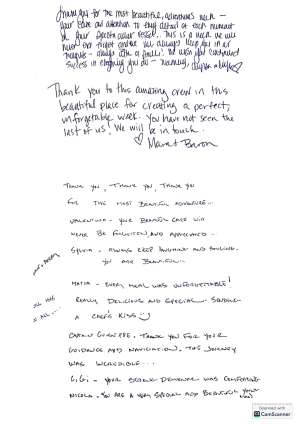 Thank you for the most beautiful, adventurous week -
your care and attention to every detail at each moment
on your spectacular vessel. This is a week we will
never ever forget and we will always keep you in our
thoughts - always with a smile! We wish you continued
success in everything you do -
Thank you to this amazing crew in this
beautiful place for creating a perfect,
unforgetable week. You have not seen the
last of us! We will be in touch.
♡ Baron
Thank you, Thank you, Thank you
for the most beautiful adventure...
Valentina - your beautiful care will
never be forgotten and appreciated.
Sylvia - always keep sunshine and smiling.
You are beautiful.
- every meal was unforgettable!
Really delicious and special. Sending
a chef's kiss
Captain Giuseppe. Thank you for your
guidance and navigation. This journey
was incredible...
GiGi - your serene demeanor was comforting
Nicola. You are a very special and beautiful
Scanned with
CamScanner